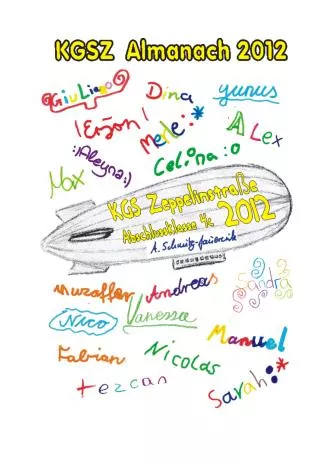 KGSZ Almanach 2012
Giuliano
Dina
yunus
!Erzon!
Merle:*
:Alex
:)Aleyna:)
Celina:o
Max
KGS Zeppelinstraße
Abschlussklasse 4c 2012
Muzaffer
Andreas
Sandra
Nico
Vanessa
Manuel
Fabian
Nicolas
tezcan
Sarah:*